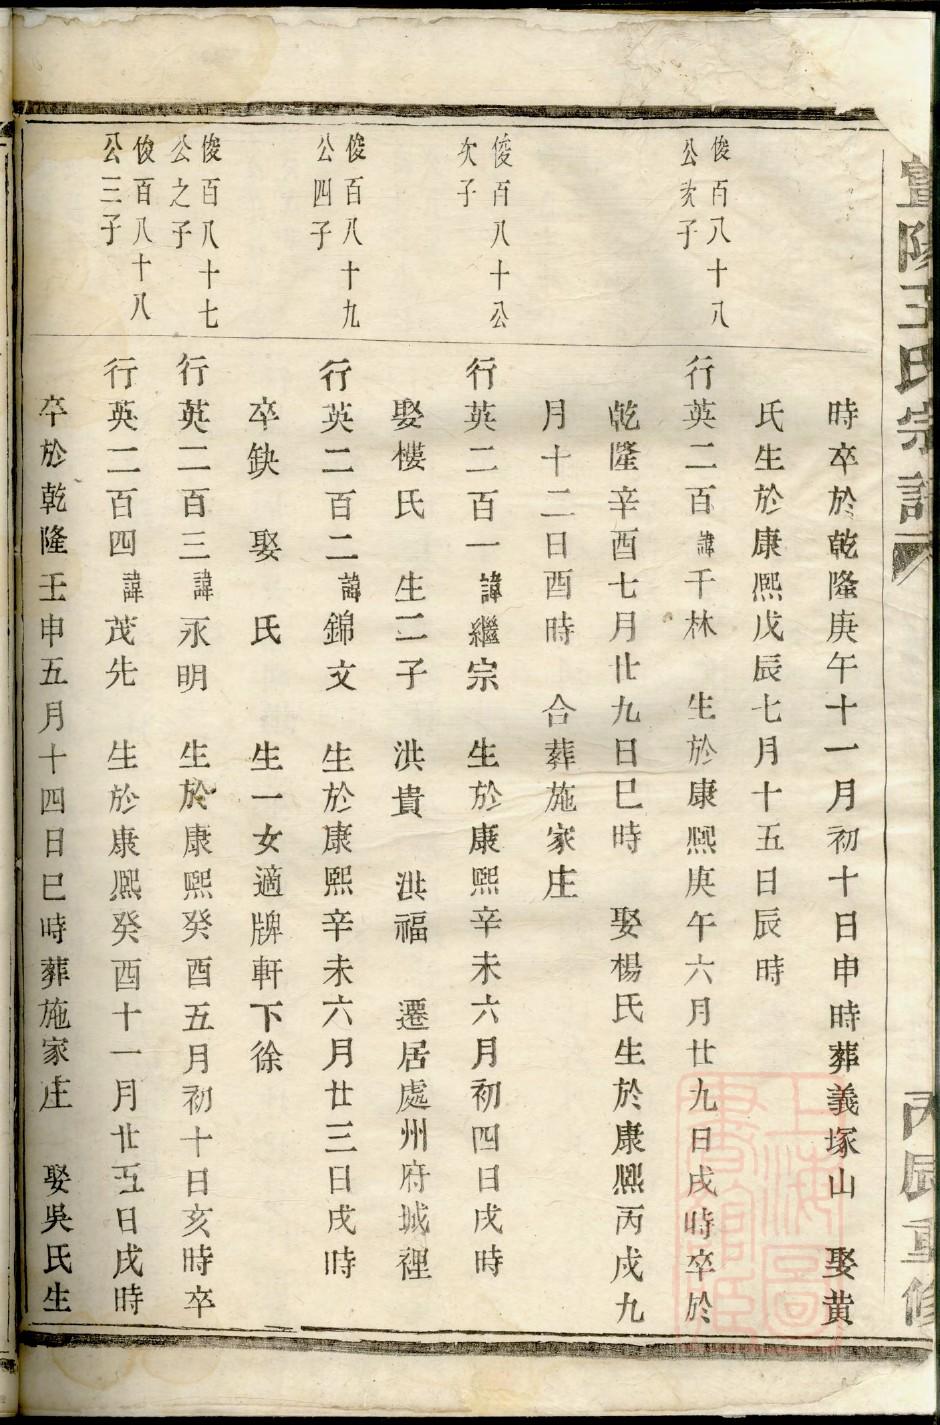 暨陽王氏宗譜
丙辰重修
時卒於乾隆庚午十一月初十日申時葬義塚山 娶黄
氏生於康熙戊辰七月十五日辰時
俊百八十八
公次子
行英二百諱千林 生於康熙庚午六月廿九日戌時卒於
乾隆辛酉七月廿九日巳時 娶楊氏生於康熙丙戌九
月十二日酉時 合葬施家庄
俊百八十公
次子
行英二百一諱繼宗 生於康熙辛未六月初四日戌時
娶樓氏 生二子 洪貴 洪福 遷居處州府城裡
俊百八十九
公四子
行英二百二諱錦文 生於康熙辛未六月廿三日戌時
卒缺 娶 氏 生一女適牌軒下徐
俊百八十七
公之子
行英二百三諱永明 生於康熙癸酉五月初十日亥時卒
俊百八十八
公三子
行英二百四諱茂先 生於康熙癸酉十一月廿五日戌時
卒於乾隆壬申五月十四日巳時葬施家庄 娶吳氏生
上海圖
書館藏